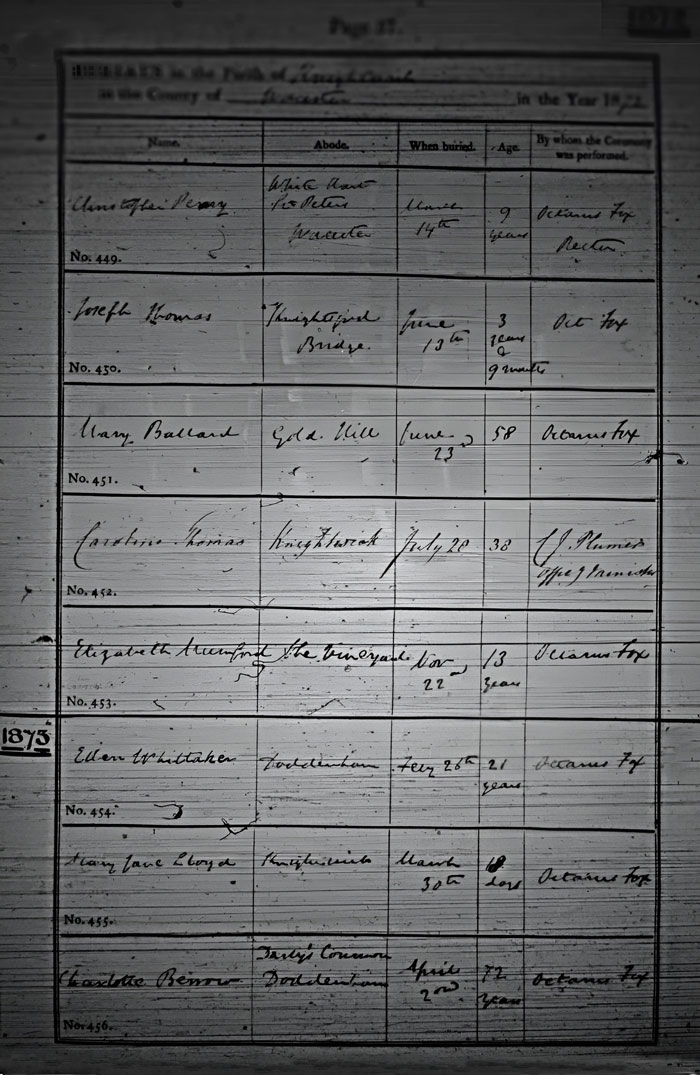 Page 57.
1872
BURIALS in the Parish of Knightwick
in the County of Worcester in the Year 1872
Name. Abode. When buried. Age. By whom the Ceremony was performed.
Christopher Perry
White Hart
St Peters
Worcester
March
14th
9
years
Octavius Fox
Rector
No. 449.
Joseph Thomas
Knightsford
Bridge
June
13th
3
years
&
9 months
Oct Fox
No. 450.
Mary Ballard
Gold Hill
June
23
58
Octavius Fox
No. 451.
Caroline Thomas
Knightwick
July 28
38
C J Plumer
No. 452.
Elizabeth Mumford
The Vineyard
Nov
22
13
years
Octavius Fox
No. 453.
1873
Ellen Whittaker
Doddenham
Feby 26th
21
years
Octavius Fox
No. 454.
Mary Jane Lloyd
Knightwick
March
30th
days
Octavius Fox
No. 455.
Charlotte Benrow
Common
Doddenham
April
2nd
72
years
Octavius Fox
No. 456.